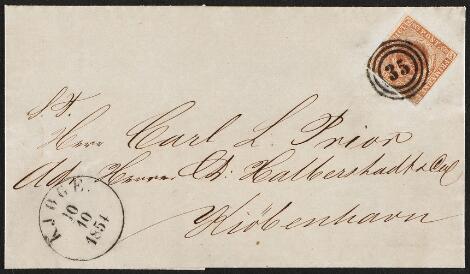 35
S. T.
Herr Carl L. Prior
Adr. Herrer Ch: Halberstadt & Co
Kiöbenhavn
KJØGE.
10
10
1854